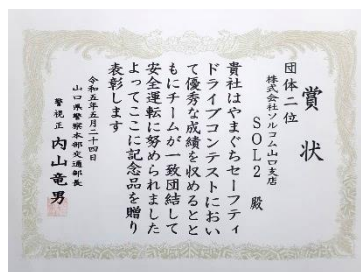 賞状
団体二位
株式会社ソルコム山口支店
SOL2 殿
貴社はやまぐちセーフティ
ドライブコンテストにおい
て優秀な成績を収めるとと
もにチームが一致団結して
安全運転に努められました
よってここに記念品を贈り
表彰します
令和五年五月二十四日
山口県警察本部交通部長
警視正 内山竜男